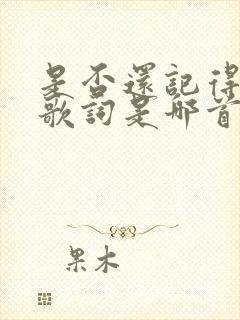 是否還記得
歌詞是那首
果木